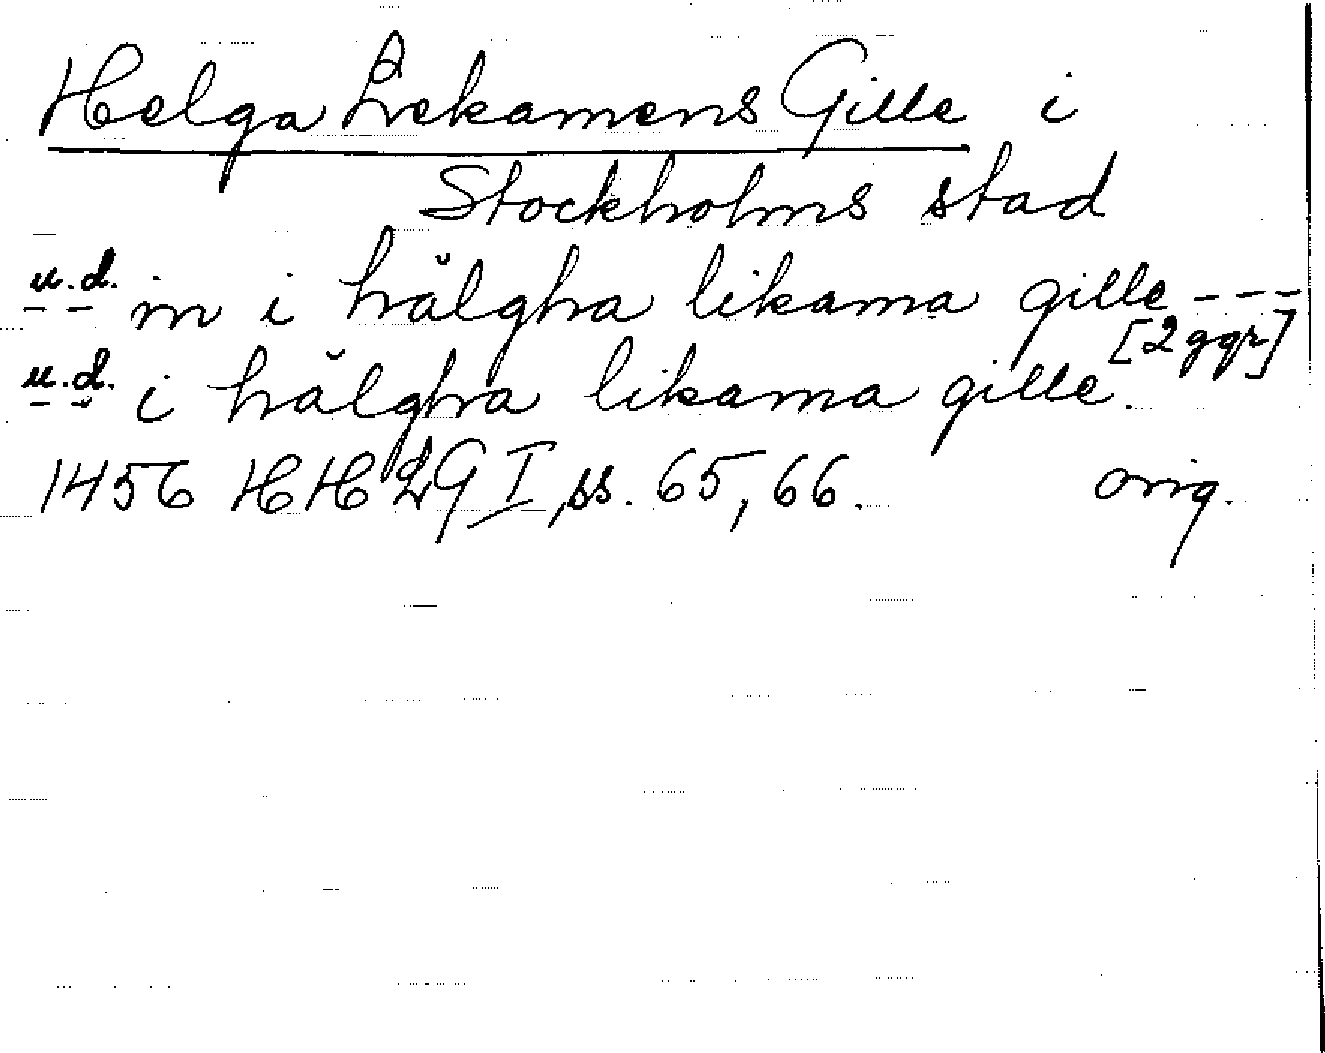 Helga Lekamens Gille i
Stockholms stad
u.d. in i hälgha likama gille ---
[2 ggr]
u.d. i hälgha likama gille.
1456 HH 2g I ss. 65, 66. orig.